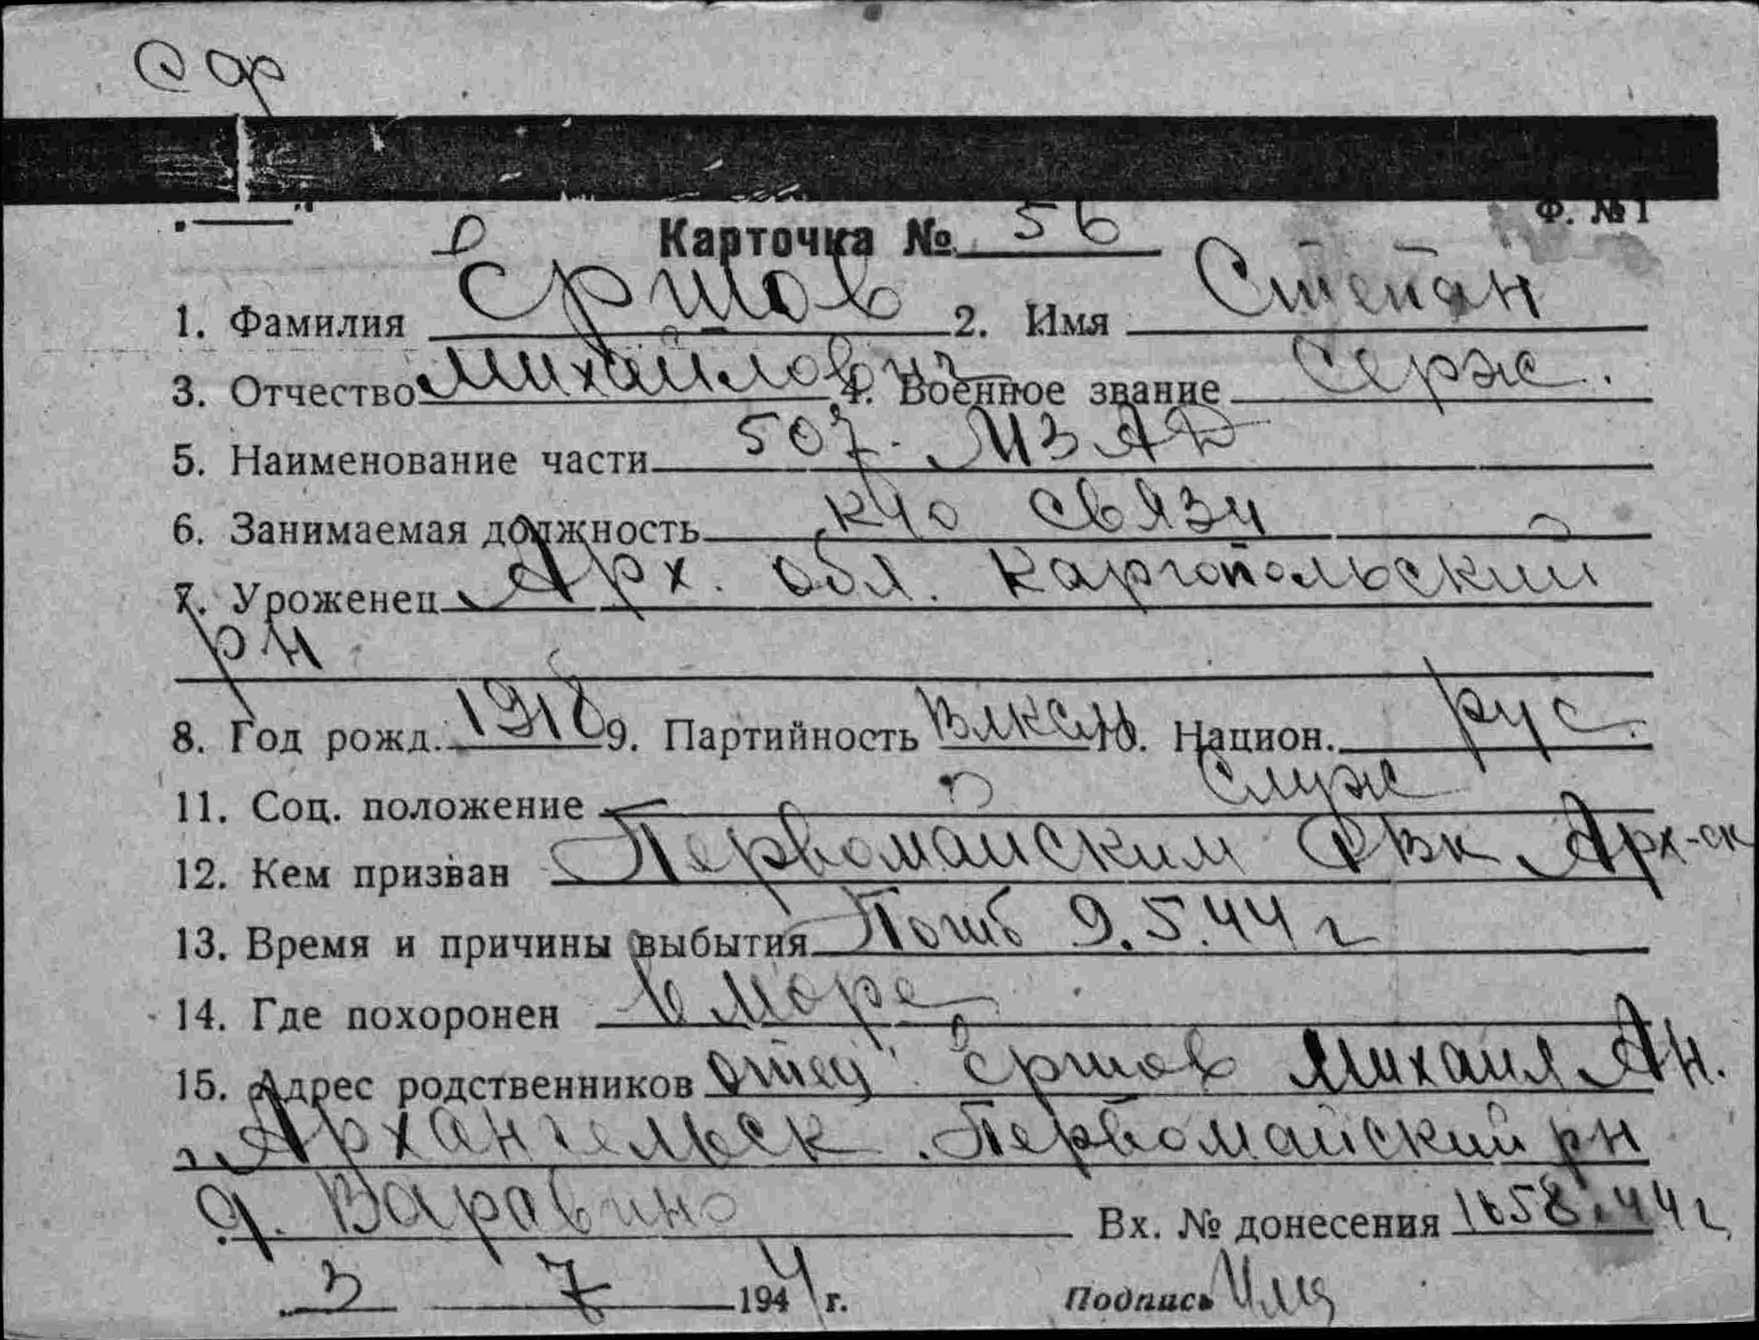 Ф. № 1
Карточка № 56
1. Фамилия Ершов 2. Имя Степан
3. Отчество Михайлович 4. Военное звание Серж.
5. Наименование части 507. МЗАД
6. Занимаемая должность к-р о связи
7. Уроженец Арх. обл. Каргопольский
рн
8. Год рожд. 1918 9. Партийность ВЛКСМ 10. Национ. рус.
11. Соц. положение служ
12. Кем призван Первомайским РВК Арх-ск
13. Время и причины выбытия Погиб 9.5.44 г
14. Где похоронен в море
15. Адрес родственников отец Ершов Михаил Ан.
г. Архангельск. Первомайский рн
д. Варавино Вх. № донесения 1658.44г
3 7 1944 г. Подпись